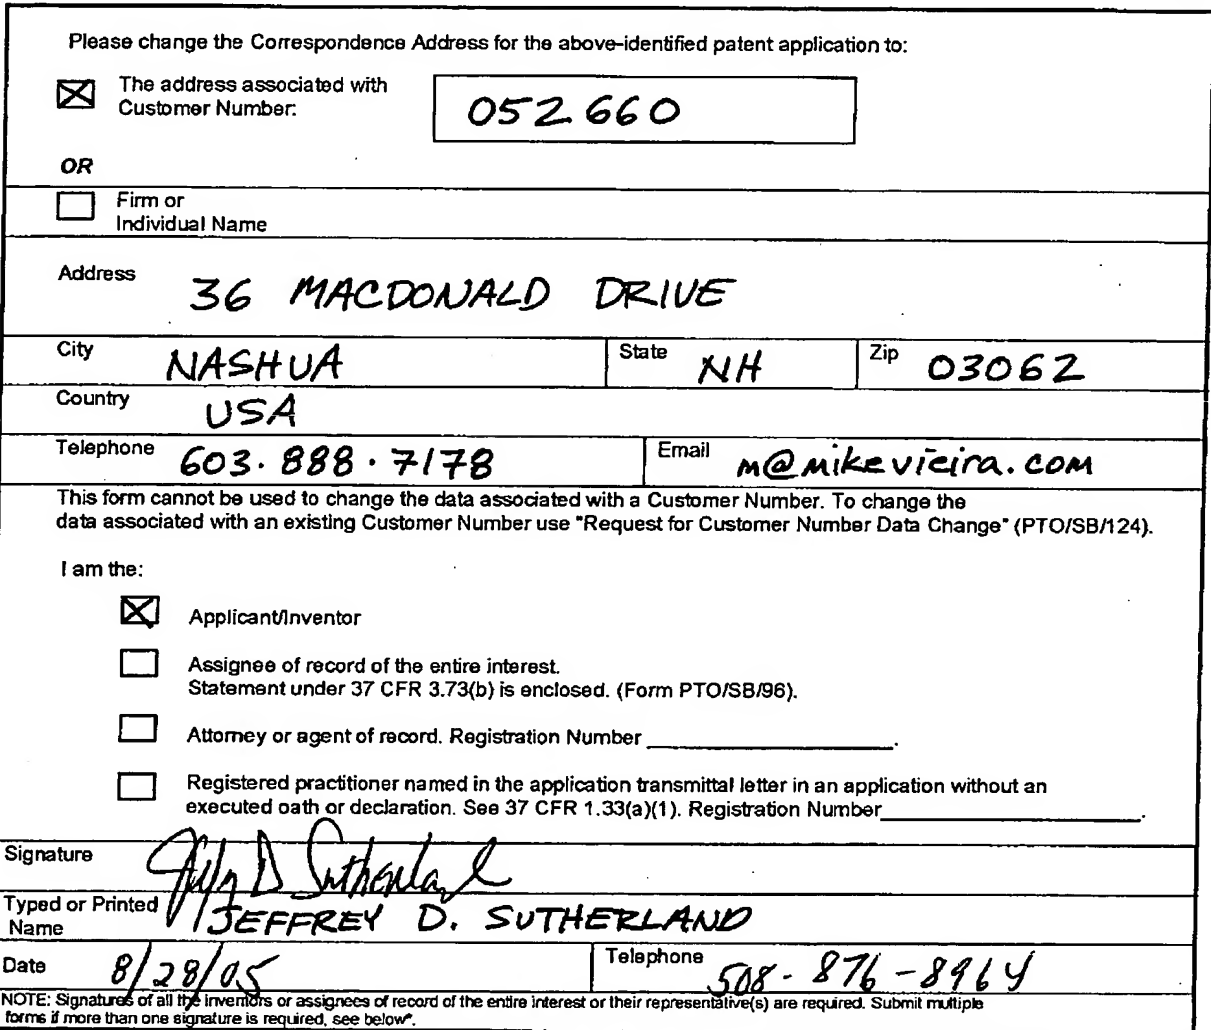 Please change the Correspondence Address for the above-identified patent application to:
The address associated with
Customer Number:
052660
OR
Firm or
Individual Name
Address 36 MACDONALD DRIVE
City NASHUA State NH Zip 03062
Country USA
Telephone 603.888.7178 Email m@mikevieira.com
This form cannot be used to change the data associated with a Customer Number. To change the
data associated with an existing Customer Number use "Request for Customer Number Data Change" (PTO/SB/124).
I am the:
Applicant/Inventor
Assignee of record of the entire interest.
Statement under 37 CFR 3.73(b) is enclosed. (Form PTO/SB/96).
Attorney or agent of record. Registration Number ____________________.
Registered practitioner named in the application transmittal letter in an application without an
executed oath or declaration. See 37 CFR 1.33(a)(1). Registration Number____________________.
Signature Jeffrey D Sutherland
Typed or Printed
Name JEFFREY D. SUTHERLAND
Date 8/28/05 Telephone 508-876-8964
NOTE: Signatures of all the inventors or assignees of record of the entire interest or their representative(s) are required. Submit multiple
forms if more than one signature is required, see below*.